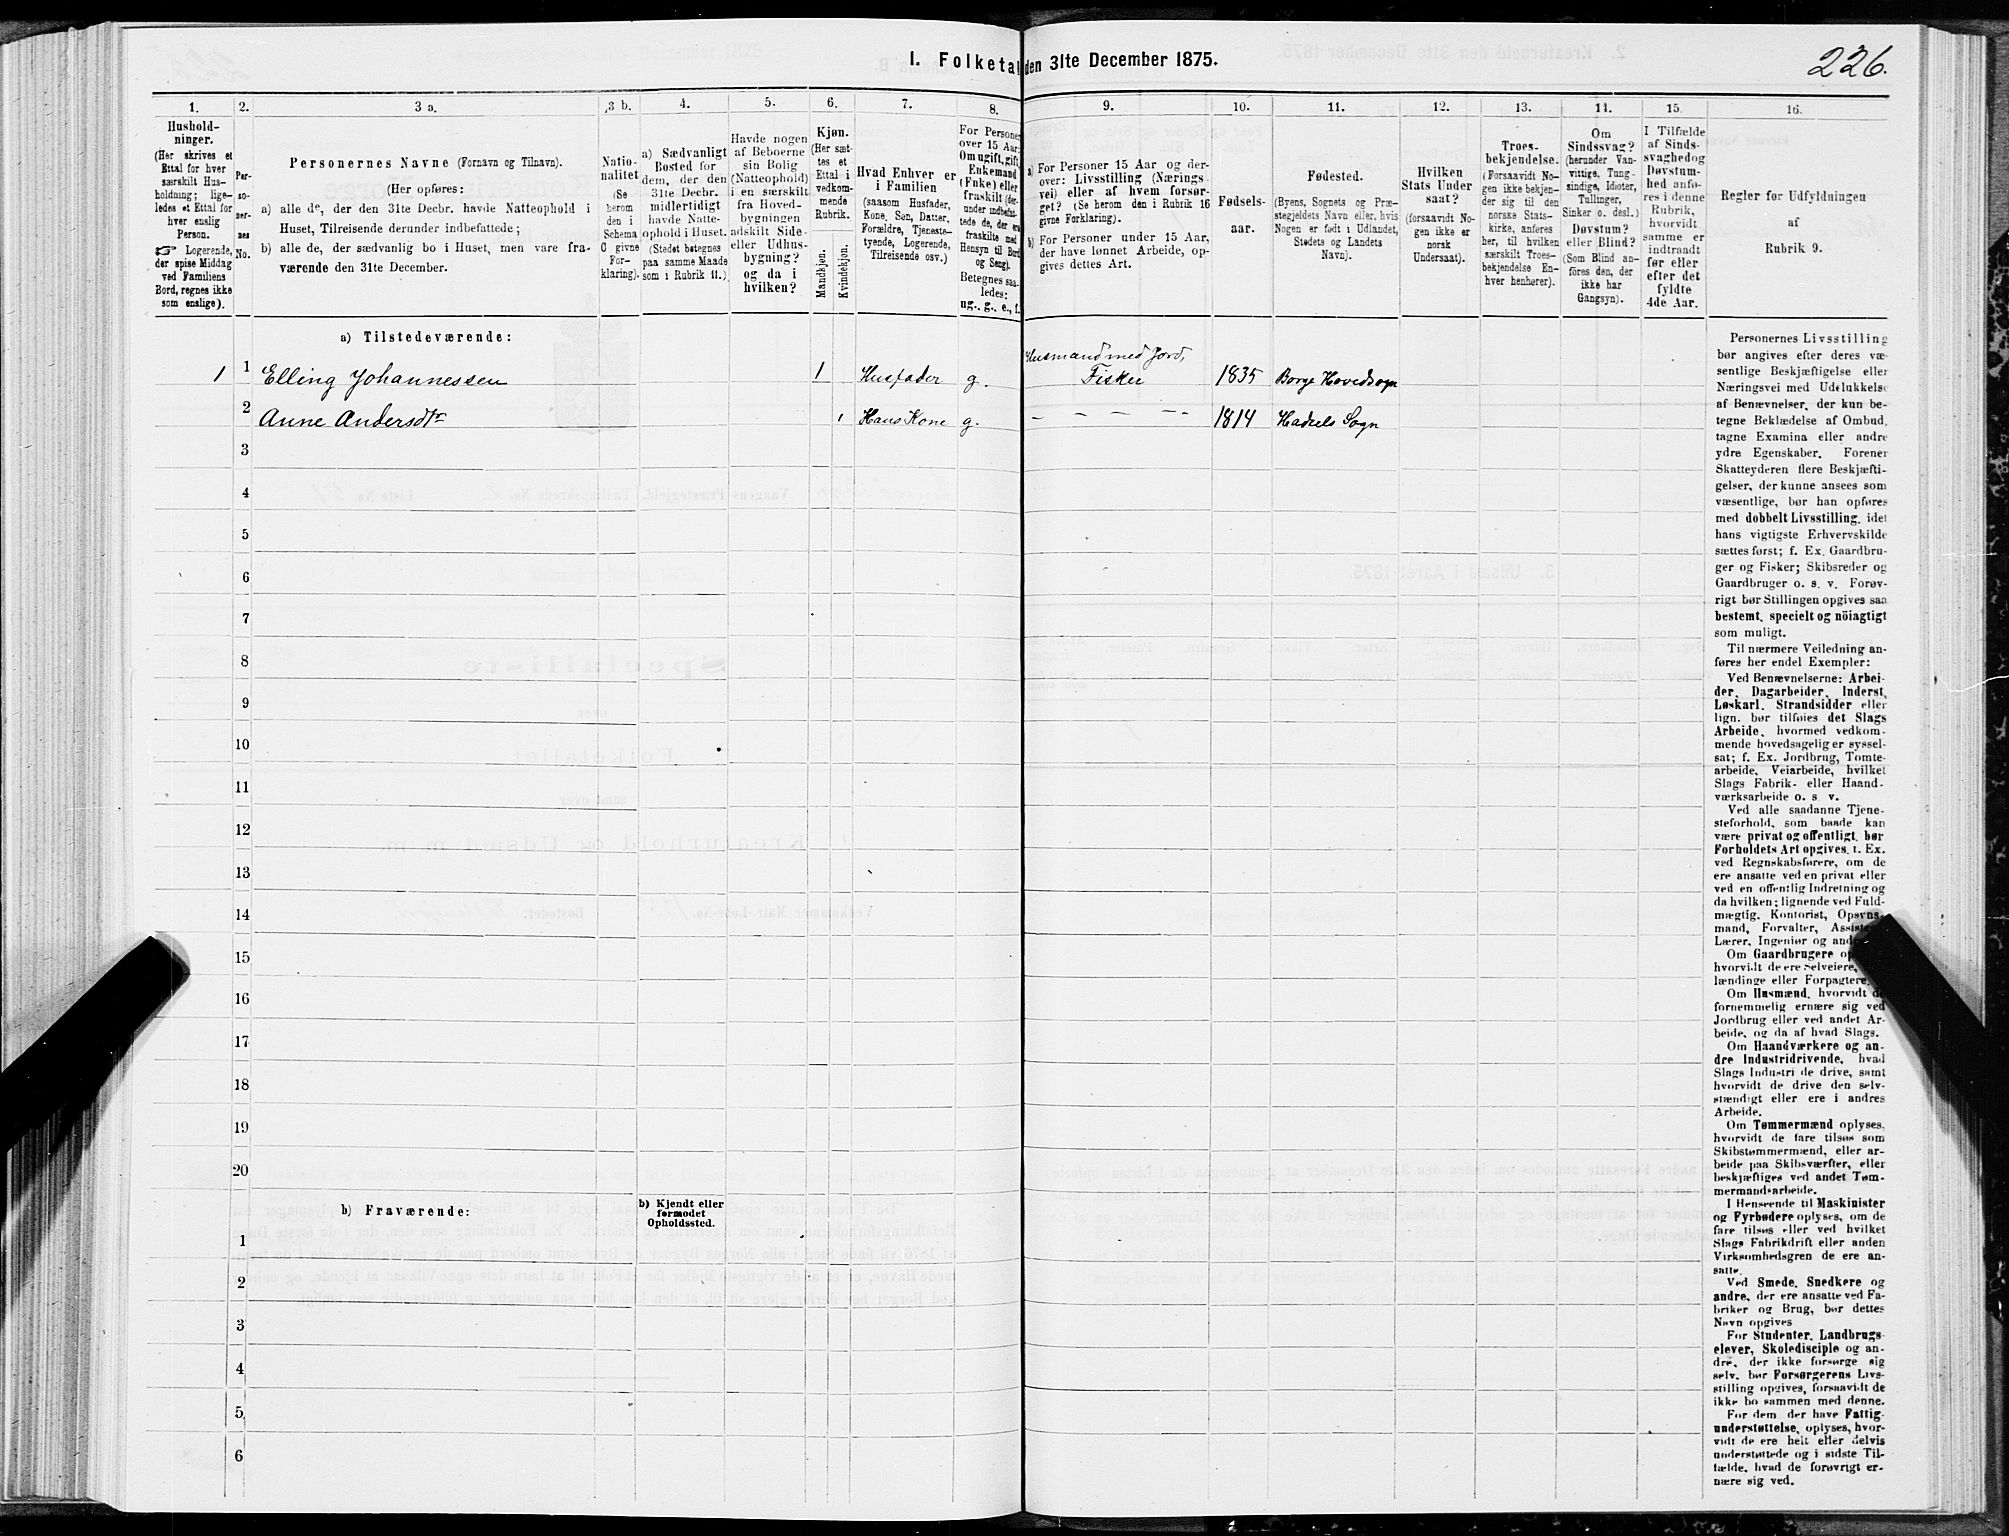 226.
1. Folketal den 31te December 1875.
1. 2. 3 a. 3 b. 4. 5. 6. 7. 8. 9. 10. 11. 12. 13. 14. 15. 16.
Hushold-
ninger.
(Her skrives et
Ettal for hver
særskilt Hus-
holdning; lige-
ledes et Ettal for
hver enslig
Person.
☞ Logerende,
der spise Middag
ved Familiens
Bord, regnes ikke
som enslige).
Per-
so-
nernes
No.
Personernes Navne (Fornavn og Tilnavn).
(Her opføres:
a) alle de, der den 31te Decbr. havde Natteophold i
Huset, Tilreisende derunder indbefattede;
b) alle de, der sædvanlig bo i Huset, men vare fra-
værende den 31te December.
Natio-
nalitet
(Se
herom
den i
Schema
O givne
For-
klaring).
a) Sædvanligt
Bosted for
dem, der den
31te Decbr.
midlertidigt
havde Natte-
ophold i Huset.
(Stedet betegnes
paa samme Maade
som i Rubrik 11.)
Havde nogen
af Beboerne
sin Bolig
(Natteophold)
i en særskilt
fra Hoved-
bygningen
adskilt Side-
eller Udhus-
bygning?
og da i
hvilken?
Kjøn.
(Her sæt-
tes et
Ettal i
vedkom-
mende
Rubrik.
Mandkjøn.
Kvindekjøn.
Hvad Enhver er
i Familien
(saasom Husfader,
Kone, Søn, Datter,
Forældre, Tjeneste-
tyende, Logerende,
Tilreisende osv.)
For Personer
over 15 Aar:
Om ugift, gift,
Enkemand
(Enke) eller
fraskilt (der-
under indbefat-
tede de, der ere
fraskilte med
Hensyn til Bord
og Seng).
Betegnes saa-
ledes:
ug., g., e., f.
a) For Personer 15 Aar og der-
over: Livsstilling (Nærings
vei) eller af hvem forsør-
get? (Se herom den i Rubrik 16
givne Forklaring).
b) For Personer under 15 Aar,
der have lønnet Arbeide, op-
gives dettes Art.
Fødsels-
aar.
Fødested.
(Byens, Sognets og Præ-
stegjeldets Navn eller, hvis
Nogen er født i Udlandet,
Stedets og Landets
Navn).
Hvilken
Stats Under
saat?
(forsaavidt No-
gen ikke er
norsk
Undersaat).
Troes-
bekjendelse.
(Forsaavidt No-
gen ikke bekjen-
der sig til den
norske Stats-
kirke, anføres
her, til hvilken
særskilt Troes-
bekjendelse En-
hver henhører).
Om
Sindssvag?
(herunder Van-
vittige, Tung-
sindige, Idioter,
Tullinger,
Sinker o. desl.)
Døvstum?
eller Blind?
(Som Blind an-
føres den, der
ikke har
Gangsyn).
I Tilfælde
af Sinds-
svaghed og
Døvstum-
hed anfø-
res i denne
Rubrik,
hvorvidt
samme er
indtraadt
før eller
efter det
fyldte
4de Aar.
Regler for Udfyldningen
af
Rubrik 9.
a) Tilstedeværende:
1 1 Elling Johannessen 1 Husfader g. Husmand med Jord, Fisker 1835 Borge Hovedsogn
2 Anne Andersdtr 1 Hans Kone g. - - - - 1814 Hadsels Sogn
3
4
5
6
7
8
9
10
11
12
13
14
15
16
17
18
19
20
b) Fraværende:
b) Kjendt eller
formodet
Opholdssted.
1
2
3
4
5
6
Personernes Livsstilling
bør angives efter deres væ-
sentlige Beskjæftigelse eller
Næringsvei med Udelukkelse
af Benævnelser, der kun be-
tegne Beklædelse af Ombud,
tagne Examina eller andre
ydre Egenskaber. Forener
Skatteyderen flere Beskjæfti-
gelser, der kunne ansees som
væsentlige, bør han opføres
med dobbelt Livsstilling, idet
hans vigtigste Erhvervskilde
sættes først; f. Ex. Gaardbru-
ger og Fisker; Skibsreder og
Gaardbruger o. s. v. Forøv-
rigt bør Stillingen opgives saa
bestemt, specielt og nöiagtigt
som muligt.
Til nærmere Veiledning an-
føres her endel Exempler:
Ved Benævnelserne: Arbei-
der, Dagarbeider, Inderst,
Løskarl, Strandsidder eller
lign. bør tilføies det Slags
Arbeide, hvormed vedkom-
mende hovedsagelig er syssel-
sat; f. Ex. Jordbrug, Tomte-
arbeide, Veiarbeide, hvilket
Slags Fabrik- eller Haand-
værksarbeide o. s v.
Ved alle saadanne Tjene-
steforhold, som baade kan
være privat og offentligt, bør
Forholdets Art opgives, t. Ex.
ved Regnskabsførere, om de
ere ansatte ved en privat eller
ved en offentlig Indretning og
da hvilken; lignende ved Fuld-
mægtig, Kontorist, Opsyns-
mand, Forvalter,
Lærer, Ingeniør og
Om Gaardbrugere
hvorvidt de ere Selveiere,
lændinge eller Forpagtere.
Om Husmænd, hvorvidt
fornemmelig ernære sig ved
Jordbrug eller ved andet Ar-
beide, og da af hvad Slags.
Om Haandværkere og an-
dre Industridrivende, hvad
Slags Industri de drive, samt
hvorvidt de drive den selv-
stændigt eller ere i andres
Arbeide.
Om Tømmermænd oplyses,
hvorvidt de fare tilsøs som
Skibstømmermænd, eller ar-
beide paa Skibsværfter, eller
beskjæftiges ved andet Tøm-
mermandsarbeide.
I Henseende til Maskinister
og Fyrbødere oplyses, om de
fare tilsøs eller ved hvilket
Slags Fabrikdrift eller anden
Virksomhedsgren de ere an-
satte.
Ved Smede, Snedkere og
andre, der ere ansatte ved Fa-
briker og Brug, bør dettes
Navn opgives
For Studenter, Landbrugs-
elever, Skoledisciple og an-
dre, der ikke forsørge sig
selv, bør Forsørgerens Livs-
stilling opgives, forsaavidt de
ikke bo sammen med denne.
For dem der have Fattig-
understøttelse, oplyses, hvor-
vidt de ere helt eller delvis
understøttede og i sidste Til-
fælde, hvad de forøvrigt er-
nære sig ved.